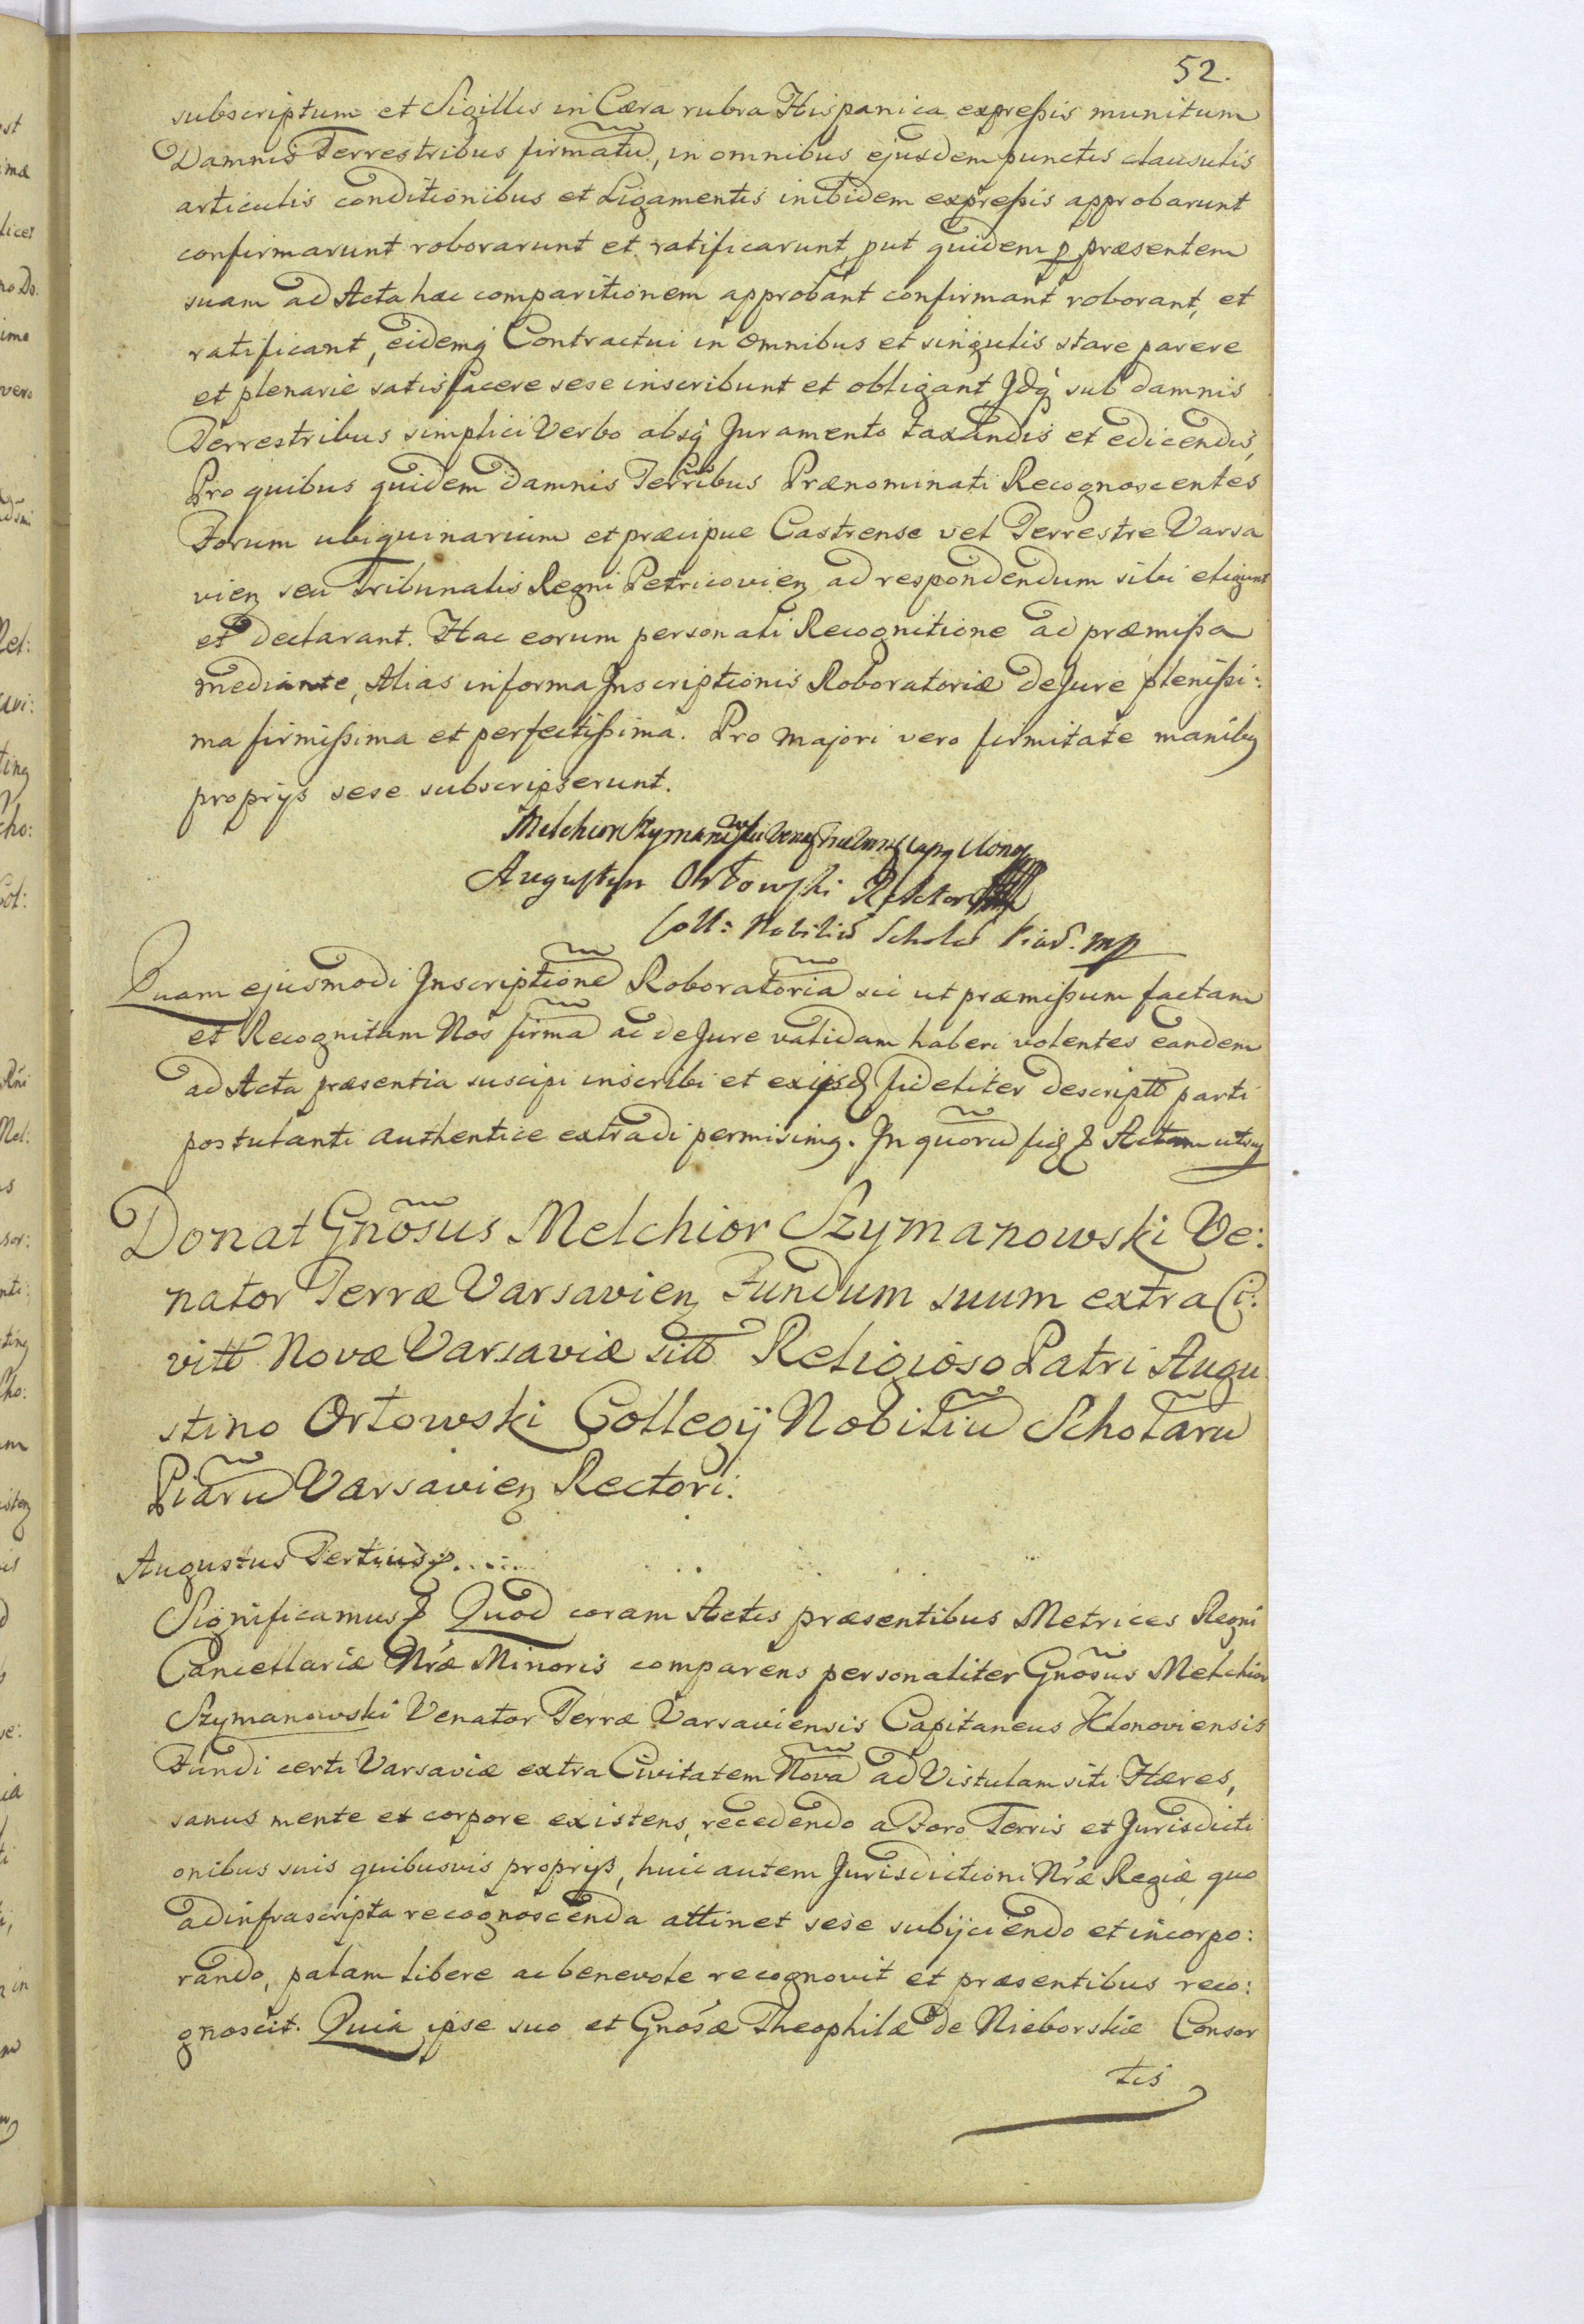 52.
subscriptum et Sigillis in Cæra rubra Hispanica expreßis munitum
Damnis Terrestribus firmatũ, in omnibus ejusdem punctis clausulis
articulis conditionibus et Ligamentis inibidem expreßis approbarunt
confirmarunt roborarunt et ratificarunt, put quidem p præsentem
suam ad Acta hæc comparitionem approbant confirmant roborant, et
ratificant, eidemq Contractui in omnibus et singulis stare parere
et plenarie satisfacere sese inscribunt et obligant, Idq sub damnis
Terrestribus simplici Verbo absq Juramento taxandis et edicendis,
Pro quibus quidem damnis Terribus Prænominati Recognoscentes
Forum ubiquinarium et præcipue Castrense vel Terrestre Varsa
vien seu Tribunalis Regni Petricovien ad respondendum sibi eligunt
et declarant. Hac eorum personali Recognitione ad præmißa
mediante, Alias in forma Inscriptionis Roboratoriæ de Jure plenißi:
ma firmißima et perfectißima. Pro majori vero firmitate manibq
proprÿs sese subscripserunt.
Melchior Szymanowski
Augustyn Orłowski Rektor
Coll: Nobiliũ Scholarũ Piar. mp
Quam ejusmodi Inscriptionẽ Roboratoriã sic ut præmißum factam
et Recognitam Nos firmã ac de Jure validam haberi volentes eandem
ad Acta præsentia suscipi inscribi et ex ijsd fideliter descriptã parti
postulanti authentice extradi permisimq. In quorũ fid Actum utsuq
Donat Gnosus Melchior Szymanowski Ve:
nator Terræ Varsavien Fundum suum extra Ci:
vitt Novæ Varsaviæ sitt Religioso Patri Augu
stino Orłowski Collegÿ Nobiliũ Scholarũ
Piarũ Varsavien Rectori.
Augustus Tertius.....
Significamus Quod coram Actis præsentibus Metrices Regni
Cancellariæ Nræ Minoris comparens personaliter Gnosus Melchior
Szymanowski Venator Terræ Varsaviensis Capitaneus Klonoviensis
Fundi certi Varsaviæ extra Civitatem Novã ad Vistulam siti Hæres,
sanus mente et corpore existens, recedendo a Foro Terris et Jurisdicti
onibus suis quibusvis proprÿs, huic autem Jurisdictioni Nræ Regiæ, quo
ad infrascripta recognoscenda attinet sese subÿciendo et incorpo:
rando, palam libere ac benevole recognovit et præsentibus reco:
gnoscit. Quia ipse suo et Gnosæ Theophilæ de Nieborskie Consor
tis